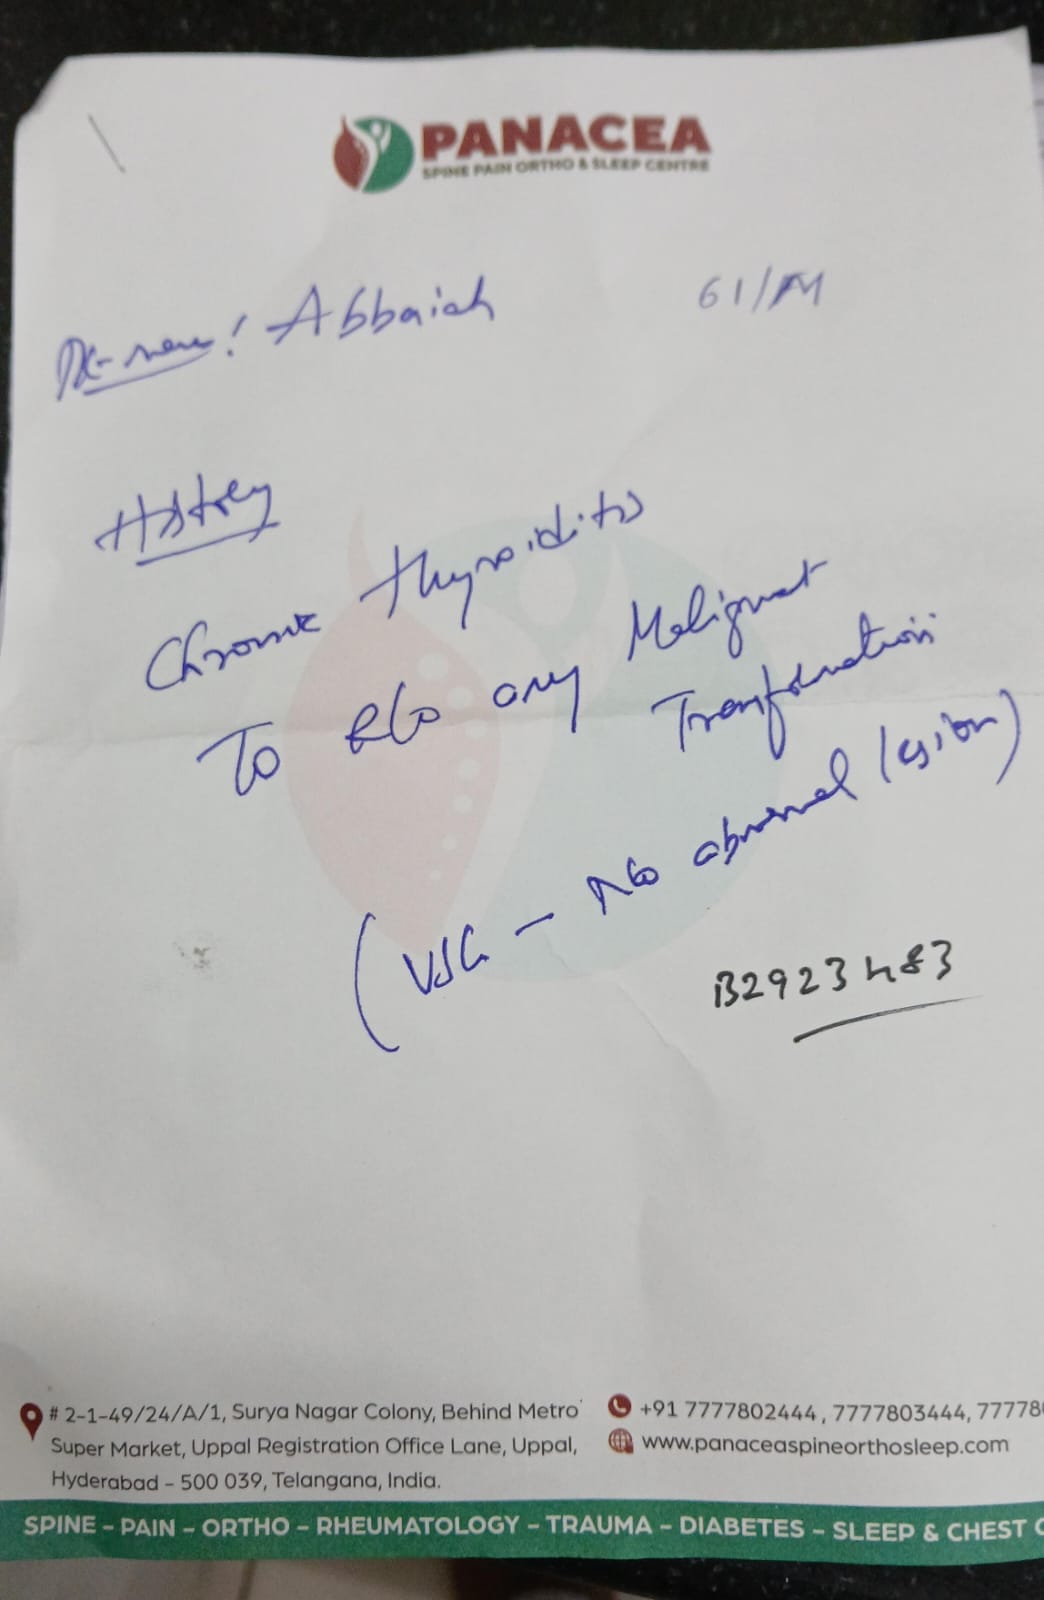 PANACEA
SPINE PAIN ORTHO & SLEEP CENTRE
Abbaiah 61/M
History
Chronic thyroiditis
To R/o any Malignant
Transformation
(USG - No abnormal lesion)
B2923483
# 2-1-49/24/A/1, Surya Nagar Colony, Behind Metro
Super Market, Uppal Registration Office Lane, Uppal,
Hyderabad - 500 039, Telangana, India.
+91 7777802444, 7777803444, 77778
www.panaceaspineorthosleep.com
SPINE - PAIN - ORTHO - RHEUMATOLOGY - TRAUMA - DIABETES - SLEEP & CHEST